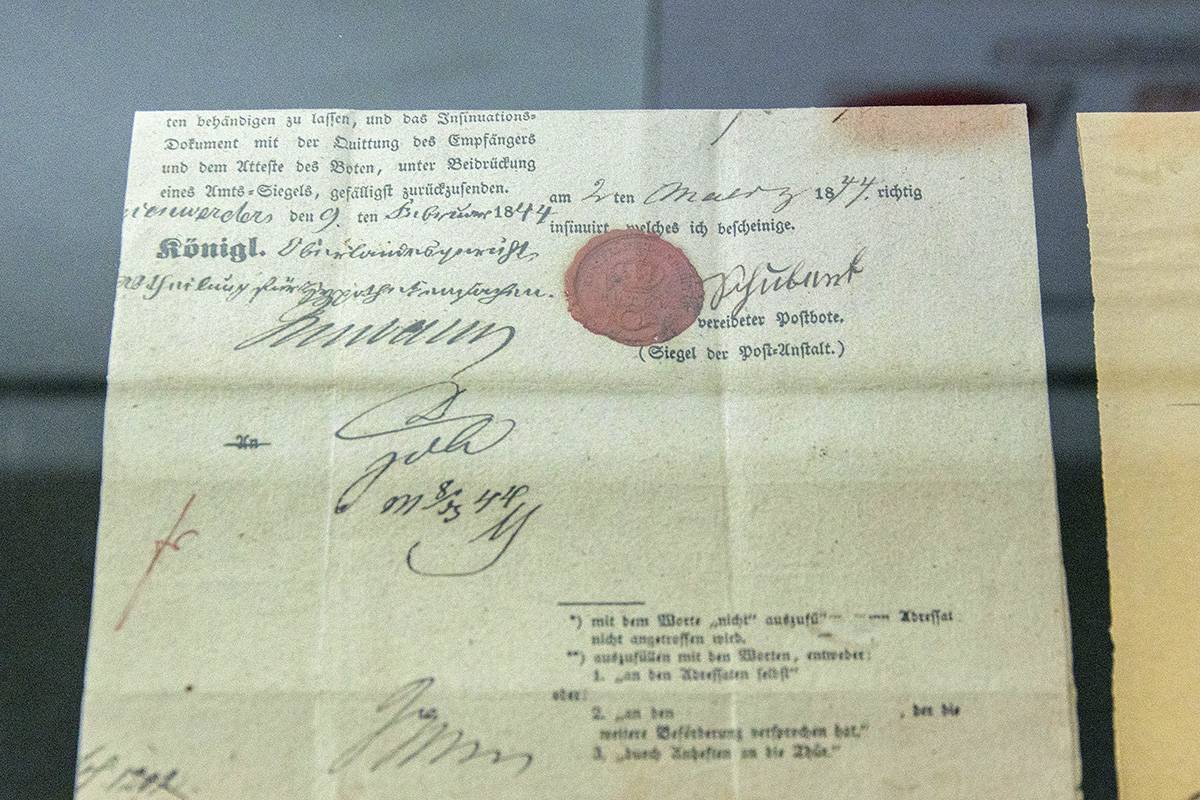 ten behändigen zu lassen, und das Insinuations-
Dokument mit der Quittung des Empfängers
und dem Atteste des Boten, unter Beidrückung
eines Amts-Siegels, gefälligst zurückzusenden.
ienwerder den 9. ten Februar 1844
Königl. Oberlandesgericht
Abtheilung für Hypothekensachen.
am 2 ten Maerz 1844. richtig
insinuirt welches ich bescheinige.
Schubert
vereideter Postbote.
(Siegel der Post-Anstalt.)
An
44
*) mit dem Worte „nicht" auszufü Adressat
nicht angetroffen wird.
**) auszufüllen mit den Worten, entweder:
1. „an den Adressaten selbst"
oder:
2. „an den , der die
weitere Beförderung versprochen hat."
3. „durch Anheften an die Thür."